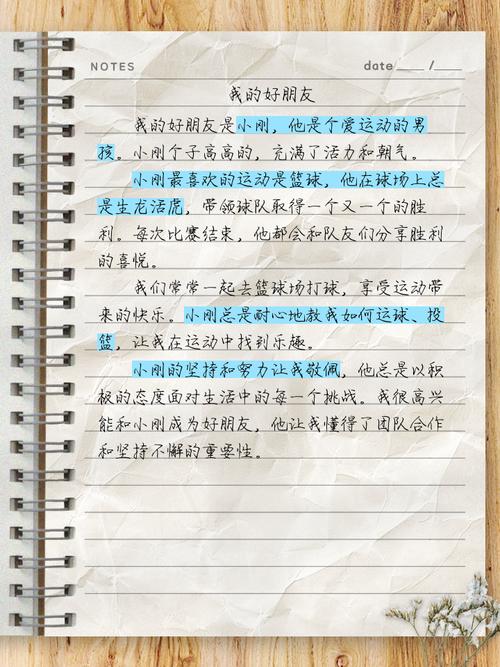 NOTES
date ____ / ____
我的好朋友
我的好朋友是小刚，他是个爱运动的男
孩。小刚个子高高的，充满了活力和朝气。
小刚最喜欢的运动是篮球，他在球场上总
是生龙活虎，带领球队取得一个又一个的胜
利。每次比赛结束，他都会和队友们分享胜利
的喜悦。
我们常常一起去篮球场打球，享受运动带
来的快乐。小刚总是耐心地教我如何运球、投
篮，让我在运动中找到乐趣。
小刚的坚持和努力让我敬佩，他总是以积
极的态度面对生活中的每一个挑战。我很高兴
能和小刚成为好朋友，他让我懂得了团队合作
和坚持不懈的重要性。